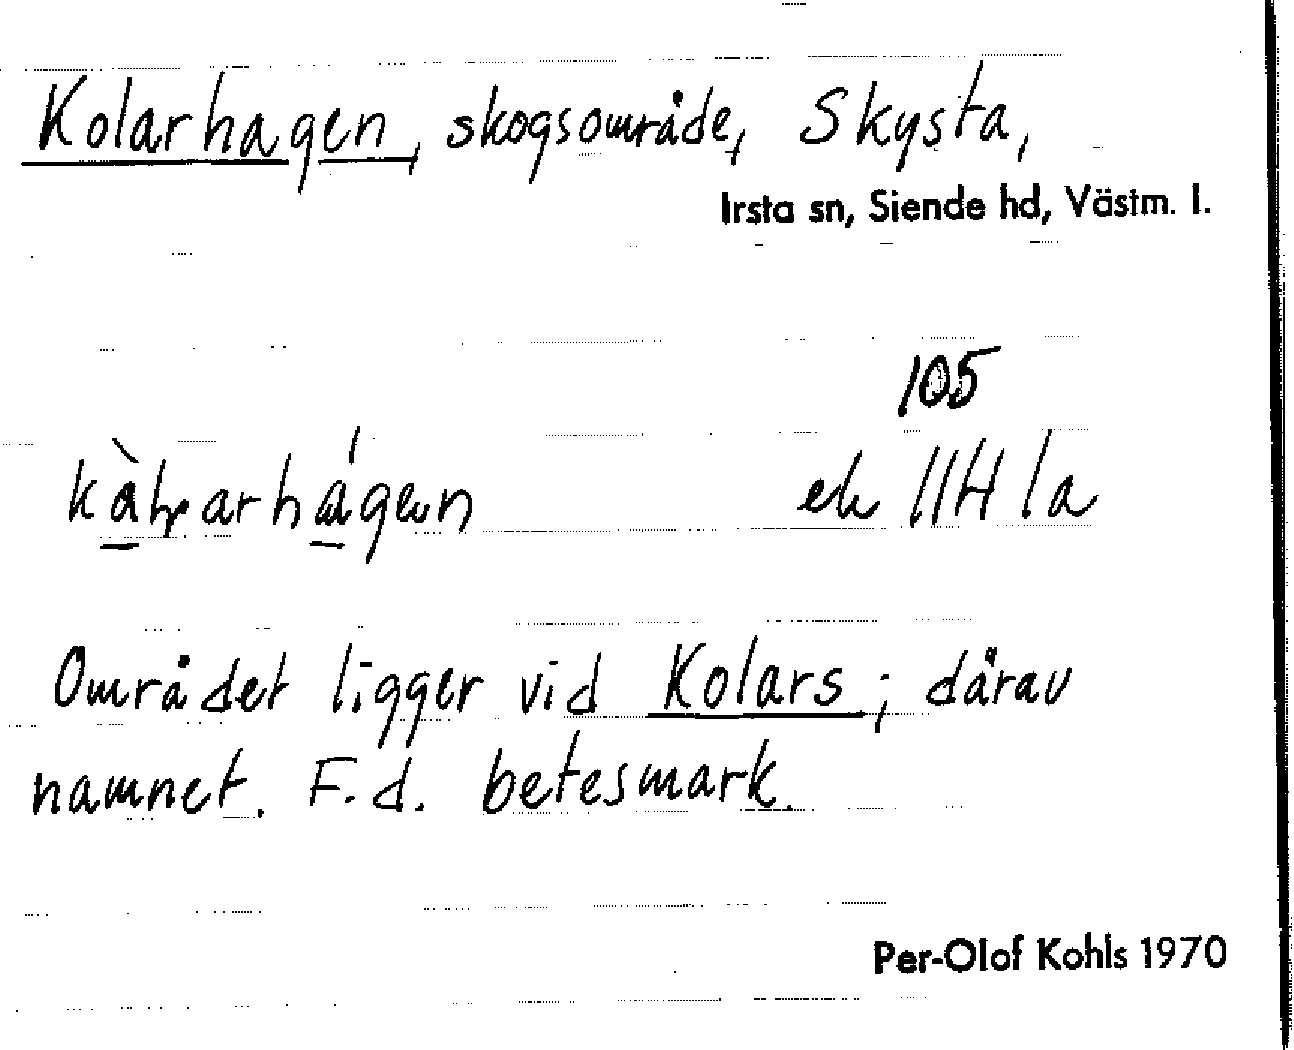 Kolarhagen, skogsområde, Skysta,
Irsta sn, Siende hd, Västm. l.
105
ek 11H 1a
Området ligger vid Kolars; dårav
namnet. F.d. betesmark.
Per-Olof Kohls 1970